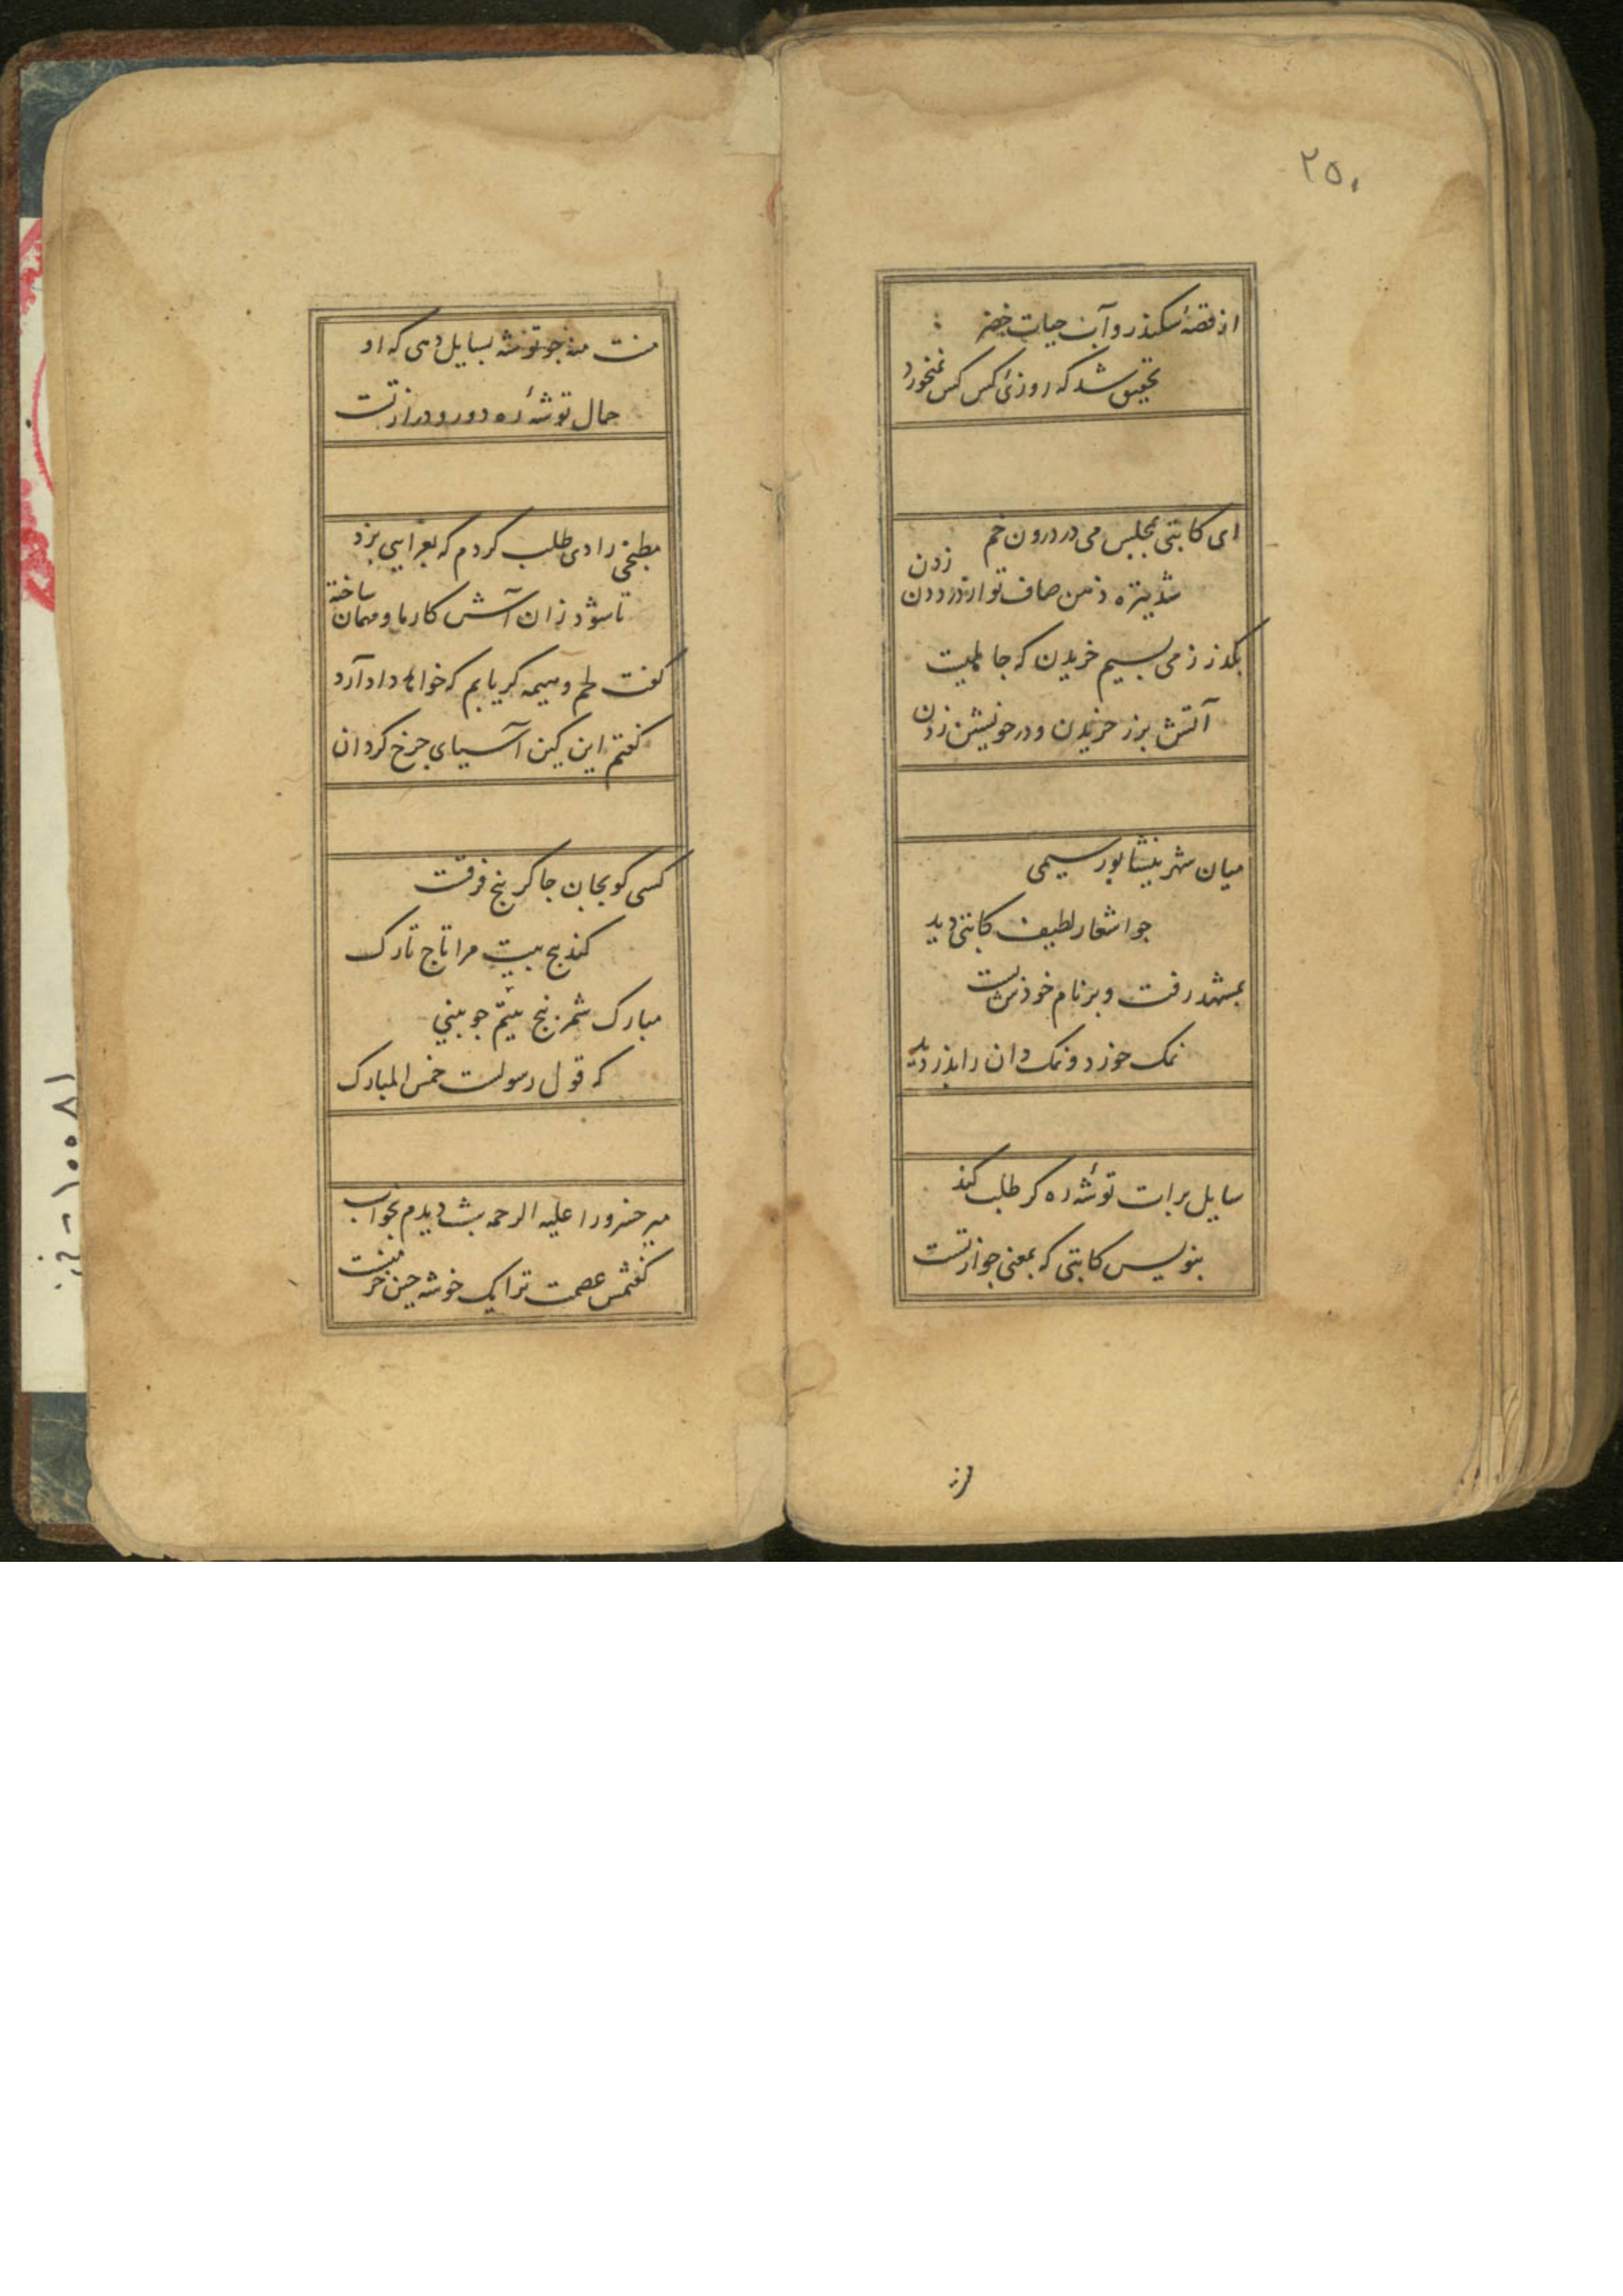 ۲۵۰
از قصهٔ سکندر و آب حیات خضر
تحقیق شد که روزئ کس کس نمیخورد
ای کاتبی بمجلس می در درون خم
شد تیره ذهن صاف تو از درد دن زدن
بگذر ز می بسیم خریدن که جاهلیت
آتش بزر خریدن و در خویشتن زدن
میان شهر نیشابور سیمی
جو اشعار لطیف کاتبی دید
بمشهد رفت و بر نام خودش بست
نمک خورد و نمک دان را بدزدید
سایل برات توشهٔ ره گر طلب کند
بنویس کاتبی که بمعنی جواز تست
منت منه جو توشه بسایل دهی که او
حمال توشهٔ ره دور و دراز تست
مطبخی را دی طلب کردم که بغرایی پزد
تا شود زان آش کار ما و مهمان ساخته
گفت لحم و دنبه گر یابم که خواهد داد آرد
گفتم این کین آسیای چرخ گردان
کسی کو بجان جا کر پنج فرقت
کند پنج بیت مرا تاج تارک
مبارک شمر پنج بیتم جو بینی
که قول رسولست خمس المبارک
میر خسرو را علیه الرحمه شب دیدم بخواب
گفتمش عصمت ترا یک خوشه جین خرمنست
۱۰۰۸۱